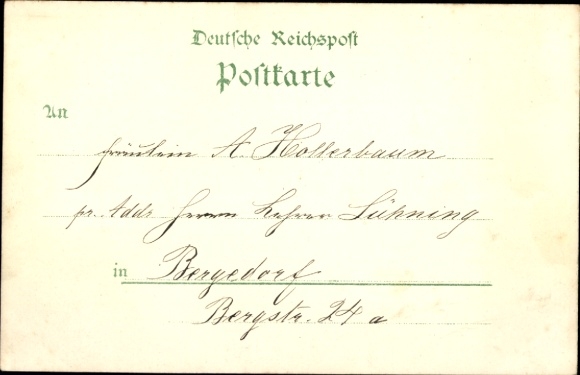 Deutsche Reichspost
Postkarte
An
Fräulein A. Hollerbaum
pr. Addr. Herrn Lehrer Lühning
in Bergedorf
Bergstr. 24 a